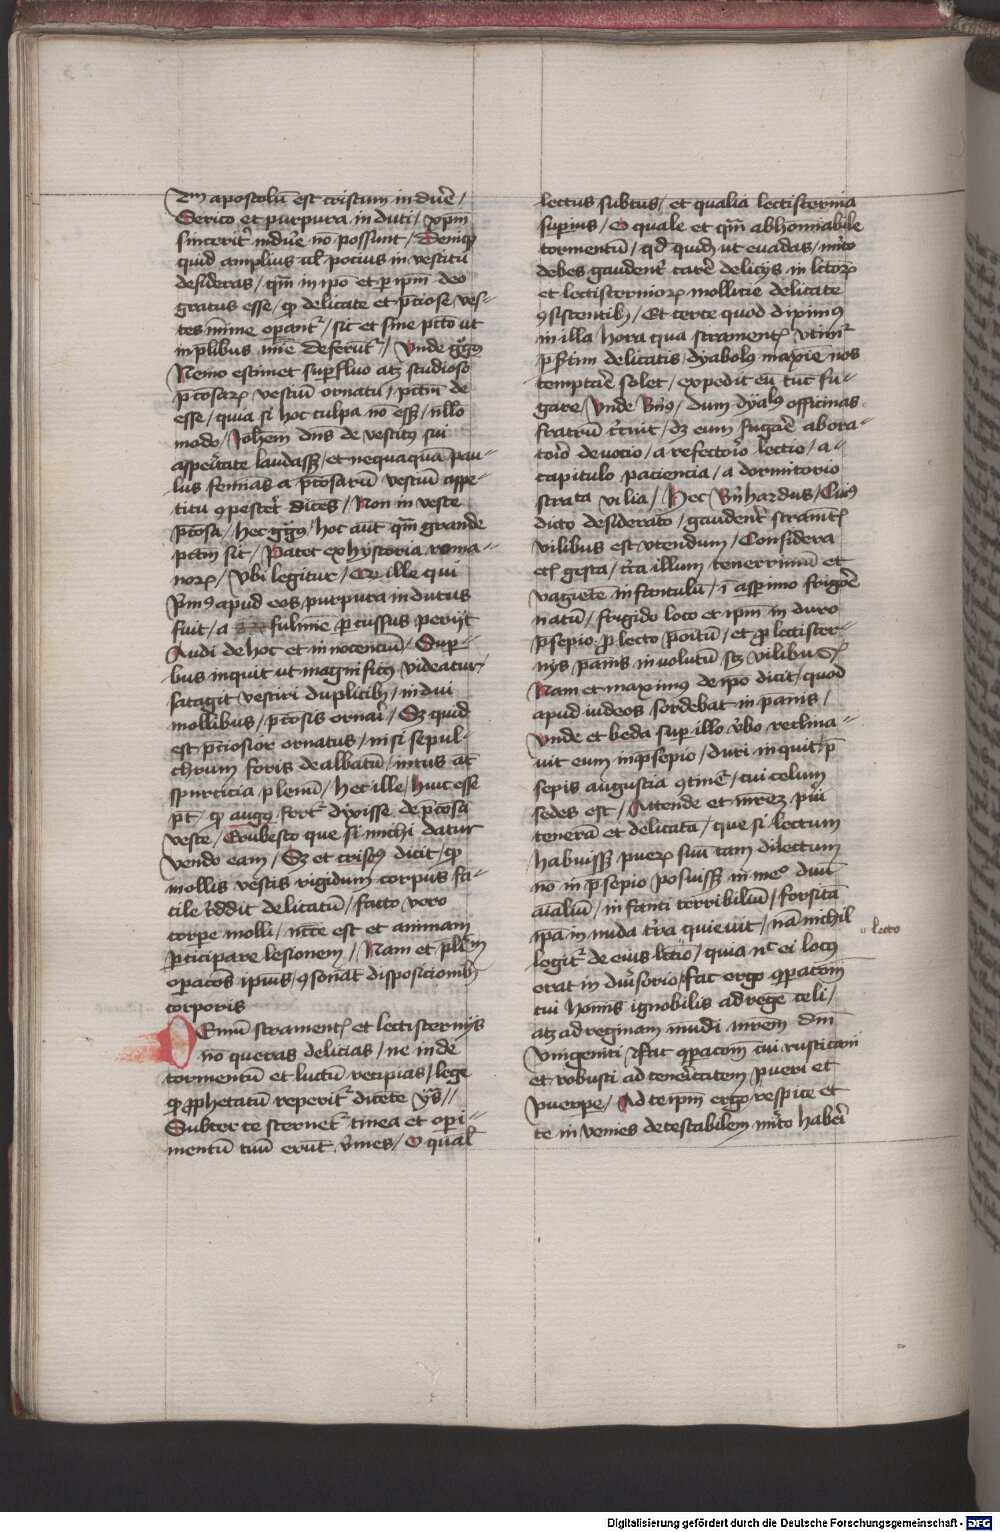 Dm apostolū est cristum induere /
Serico et purpura induti / xpm̄
sincerit̉ induẻ nō possunt / Deniq̨
quid amplius ul̄ pocius in vestitu
desideras / qm̄ in ipō et p ipm̄ deo
gratus esse / qr delicate et p̄ciose ves-
tes mīime opant̉ / sic et sine pctō ut
in plibus mē deferūt̉ // Vnde gg̉oꝰ
Nemo estimet supfluo atqꝫ studioso
p̄cosaꝝ vestiū ornatu / pctm̄ de
esse / quia si hoc culpa nō esset / nullo
modo / Joh̄em dns de vestitꝰ sui
aspe̓itate laudassꝫ / et nequaquā pau-
lus feminas a p̄cosarū vestiū appe-
titu ꝯpesceret dicēs / Non in veste
p̄cosa / hec gg̉oꝰ / hoc aut̄ qm̄ grande
pctm̄ sit / Patet ex hystoria roma-
noꝝ / Vbi legitur / Qr ille qui
p̉mꝰ apud eos purpura indutus
fuit / a fulmine pcussus perijt
Audi de hoc et innocentiū / Sup-
bus inquit ut magnificꝰ videatur /
satagit vestiri duplicibꝫ / indui
mollibus / p̄cosis ornari / Sꝫ quid
est p̄ciosior ornatus / nisi sepul-
chrum foris dealbatū / intus at̄
spurcicia plenū / hec ille / Huic esse
pt̄ / qr augꝰ fert̉ dixisse de p̄cosa
veste / Erubesco que si michi datur
vendo eam / Sꝫ et crisosꝰ dicit / qr
mollis vestis rigidum corpus fa-
cile reddit delicatū / facto vero
corpe molli / ncc̄e est et animam
pticipare lesionem // Nam et pl̄m
opacōs ipius / ꝯsonāt disposicionibꝫ
corporis
Demū stramentꝭ et lectisternijs
nō queras delicias / ne inde
tormentū et luctū recipias / lege
qr ꝓphetatū reperit̉ dicēte ys̄ //
Subter te sternet̉ tinea et opi-
mentū tuū erūt v̓mes / O quale
lectus subtus / et qualia lectisternia
supius / O quale et qm̄ abhominabile
tormentū / qd quidē ut euadas / mito
debes gaudent̉ carere delicijs in lectoꝝ
et lectisternioꝝ mollicie delicate
ꝯsistentibꝫ / Et certe quod diximꝰ
in illa hora qua stramentꝭ vtim̉
psertim delicatis dyabolꝰ maxime nos
temptare solet / expedit eū tūc fu-
gare / Vnde Bn̄ꝰ / dum dyabꝰ officinas
fratrū circuit / dꝫ eum fugare ab ora-
torio deuocio / a refectorio lectio / a
capitulo paciencia / a dormitorio
strata vilia / Hec Bn̄hardus / Cuiꝰ
dicto desiderato / gaudent̉ stramētꝭ
vilibus est vtendum / Considera
etꝭ gesta / circa illum tenerrimū et
vagiētē infantulū / ī asperimo frigore
natū / frigido loco et ipm̄ in duro
p̄sepio ꝓ lecto positū / et ꝓ lectister-
nijs pannis inuolutū sꝫ vilibus etꝭ
Nam et maximꝰ de ipō dicit / quod
apud iudeos sordebat in pannis /
Vnde et beda sup illo v̓bo reclina-
uit eum in p̄sepio / duri inquit p̄
sepis angustia ꝯtinet̉ / cui celum
sedes est / Attende et mr̄em pueri
tenerā et delicatā / que si lectum
habuissꝫ pueꝝ suū tam dilectum
nō in p̄sepio posuissꝫ in medio duū
aīalium / infanti terribilium / forsitā
ipa in nuda terra quieuit / nā nichil
legit̉ de eius lectō / quia nō ei locꝰ
erat in diuersorio / fac ergo ꝯpacōem
tui hominis ignobilis ad regē celi /
atqꝫ ad reginam mūdi mr̄em dni
Vnigeniti / Fac ꝯpacōem tui rusticani
et robusti ad teneritatem pueri et
puerpe / Ad teipm̄ ergo respice et
te inuenies detestabilem mito haberi
lecto
Digitalisierung gefördert durch die Deutsche Forschungsgemeinschaft - DFG